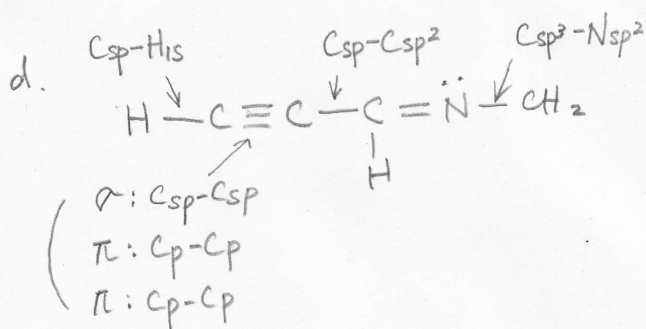 d.
Csp-H1s Csp-Csp² Csp³-Nsp²
H—C≡C—C=N̈—CH₂
H
σ: Csp-Csp
π: Cp-Cp
π: Cp-Cp